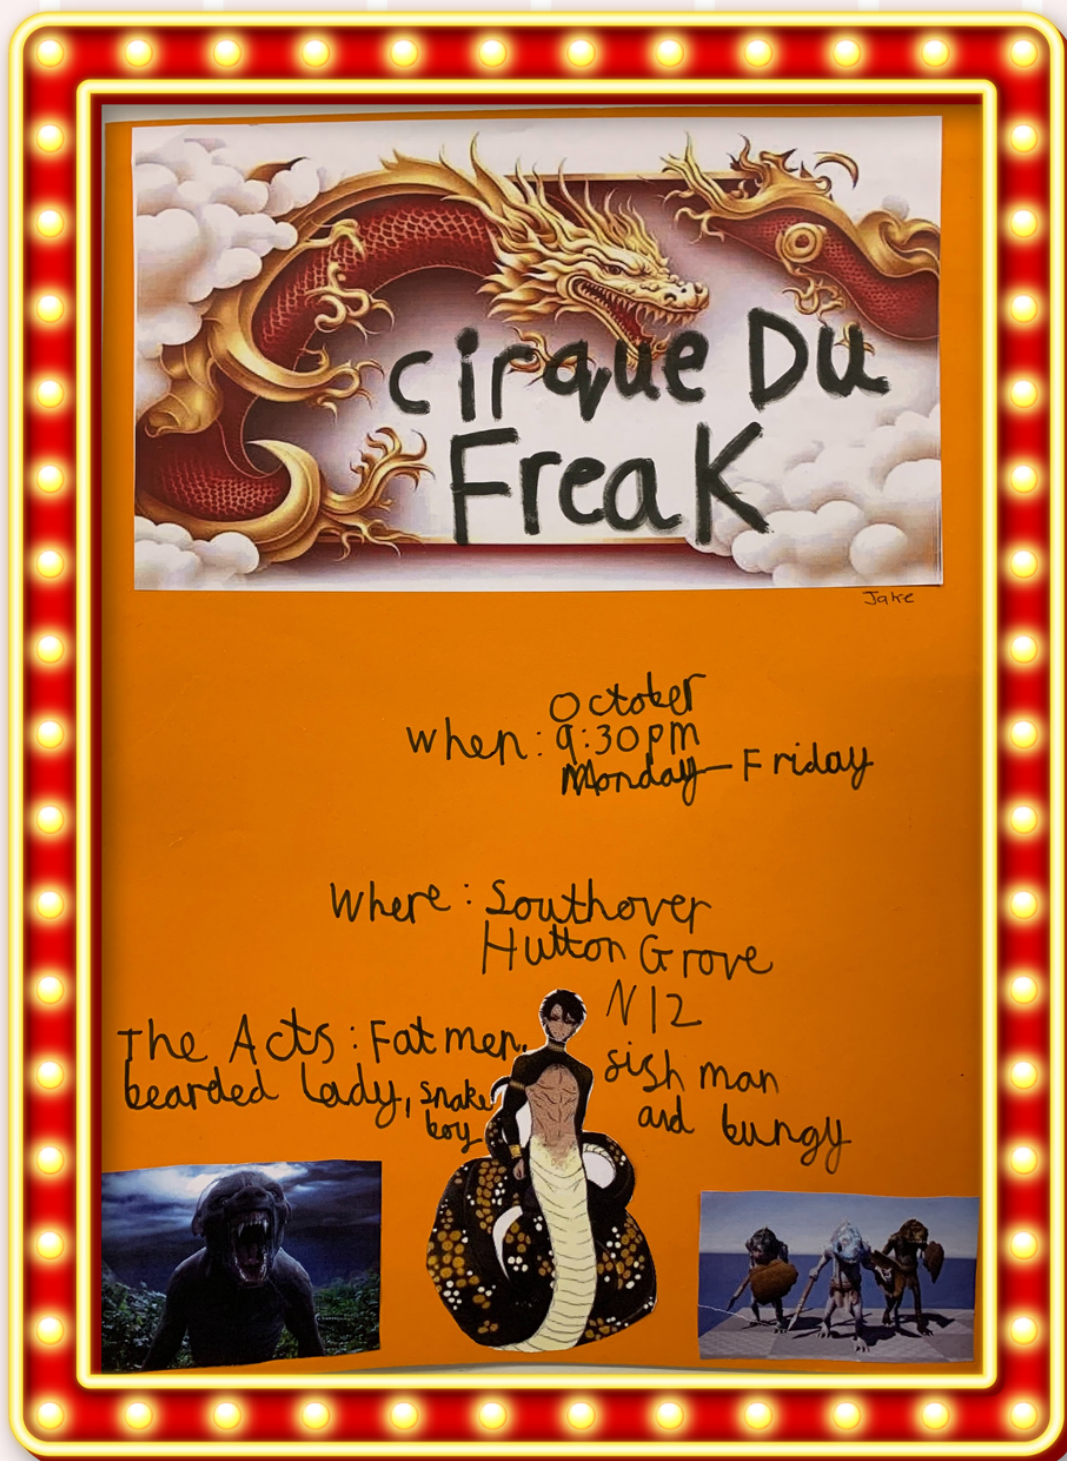 cirque Du
Freak
Jake
October
when: 9:30pm
Monday-Friday
Where: Southover
Hutton Grove
N12
The Acts: Fat men,
bearded lady, snake
boy
sish man
and bungy